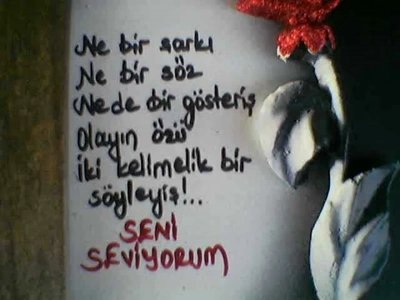 Ne bir şarkı
Ne bir söz
Nede bir gösteriş
Olayın özü
iki kelimelik bir
söyleyiş!...
SENİ
SEVİYORUM